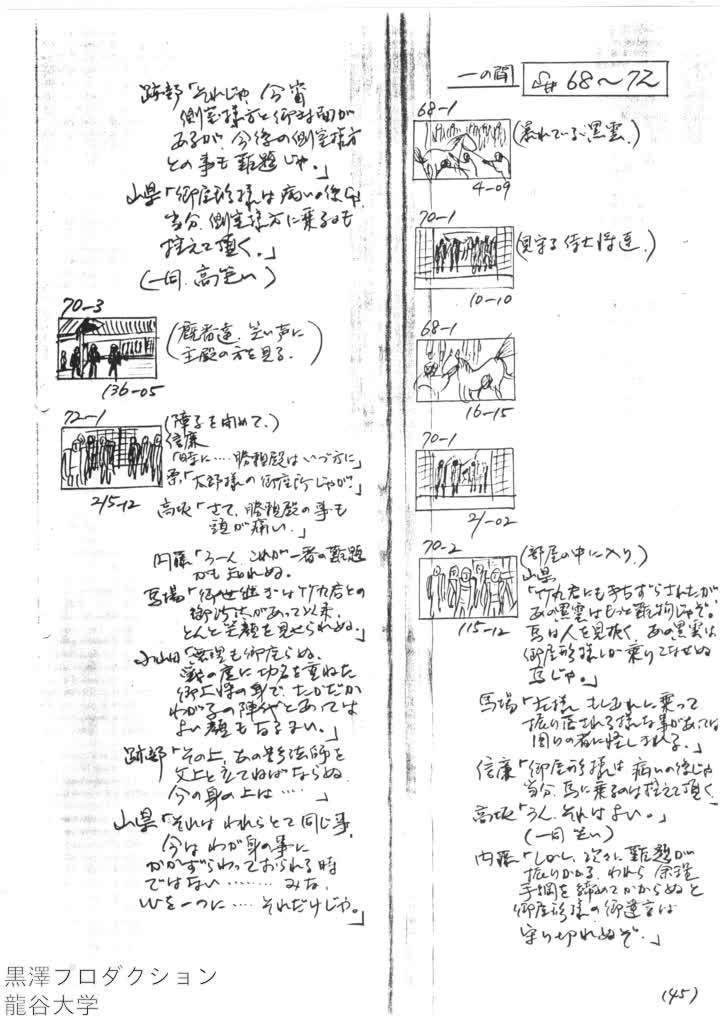 一の間 S# 68〜72
68-1
(暴れている黒雲)
4-09
70-1
(見守る侍大将達)
10-10
68-1
16-15
70-1
21-02
70-2
(部屋の中に入り)
115-12
山県
「竹丸君にも手こずらされたが
あの黒雲はもっと難物じゃぞ。
馬は人を見抜く、あの黒雲は
御屋形様しか乗りこなせぬ
馬じゃ。」
馬場「左様 もしあれに乗って
振り落される様な事があっては
周りの者に怪しまれる。」
信廉「御屋形様は病いの後じゃ
当分、馬に乗るのは控えて頂く」
高坂「うん、それはよい。」
(一同 笑い)
内藤「しかし、次々に難題が
振りかかる、われら 余程
手綱を締めてかからぬと
御屋形様の御遺言は
守り切れぬぞ。」
跡部「それじゃ 今宵
側室様方と御対面が
あるが、今後の側室様方
との事も難題じゃ。」
山県「御屋形様は病いの後じゃ
当分、側室様方に乗るのも
控えて頂く。」
(一同、高笑い)
70-3
(厩者達、笑い声に
主殿の方を見る。)
136-05
72-1
(障子を閉めて)
信廉
「時に‥‥勝頼殿はいづ方に」
「太郎様の御座所じゃが」
215-12
高坂「さて、勝頼殿の事も
頭が痛い。」
内藤「うーん、これが一番の難題
かも知れぬ。
馬場「御世継ぎは竹丸君との
御沙汰があって以来、
とんと笑顔を見せられぬ。」
小山田「無理も御座らぬ、
戦の度に功名を重ねた
御大将の身で、たかだか
わが子の陣代とあっては
よい顔もなるまい。」
跡部「その上、あの影法師を
父上と立てねばならぬ
今の身の上は‥‥」
山県「それは われらとて同じ事、
今は わが身の事に
かかずらわっておられる時
ではない‥‥‥‥みな、
心を一つに‥‥それだけじゃ。」
(45)
黒澤プロダクション
龍谷大学